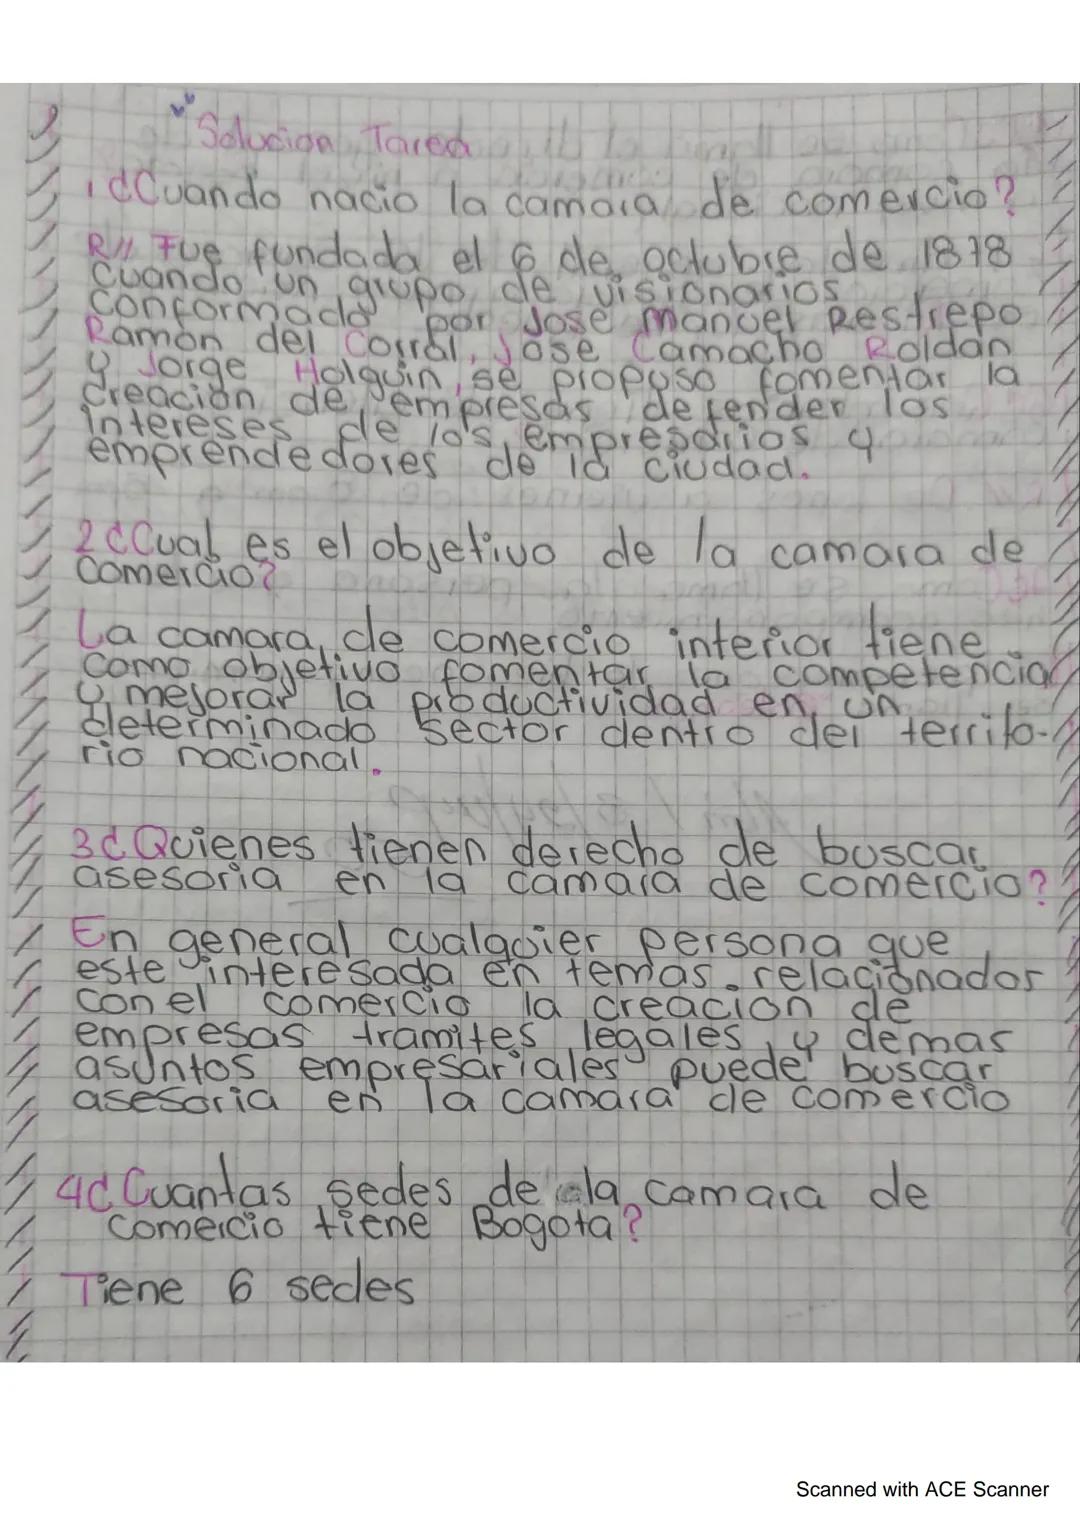 Solucion Tarea
1 ¿Cuando nacio la camara de comercio?
R// Fue fundada el 6 de octubre de 1878
cuando un grupo de visionarios
conformado por Jose Manuel Restrepo
Ramon del Corral, Jose Camacho Roldan
y Jorge Holguin, se propuso fomentar la
creacion de empresas defender los
intereses de los empresarios y
emprendedores de la ciudad.
2 ¿Cual es el objetivo de la camara de
comercio?
La camara de comercio interior tiene
como objetivo fomentar la competencia
y mejorar la productividad en un
determinado sector dentro del territo-
rio nacional.
3 ¿Quienes tienen derecho de buscar
asesoria en la camara de comercio?
En general cualquier persona que
este interesada en temas relacionados
con el comercio la creacion de
empresas tramites legales y demas
asuntos empresariales puede buscar
asesoria en la camara de comercio
4 ¿Cuantas sedes de la camara de
comercio tiene Bogota?
Tiene 6 sedes
Scanned with ACE Scanner